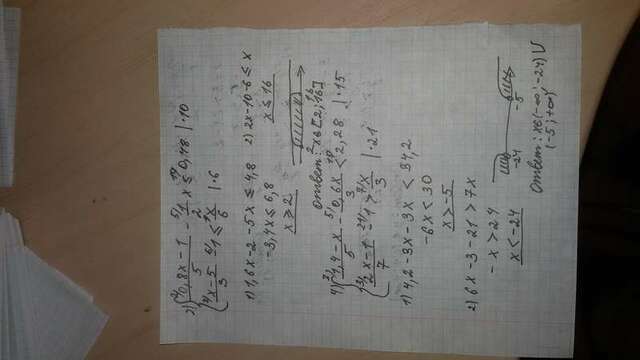 3) { (0,8x-1)/5 - (1/2)x ≤ 0,48 |·10
{ (x-5)/3 - 1 ≤ x/6 |·6
1) 1,6x-2-5x ≤ 4,8
-3,4x ≤ 6,8
x ≥ 2
2) 2x-10-6 ≤ x
x ≤ 16
2 16
Ответ: x∈[2;16]
4) { (1,4-x)/5 - (0,6x)/3 < 2,28 |·15
{ (2x-1)/7 - 1 > x/3 |·21
1) 4,2-3x-3x < 34,2
-6x < 30
x > -5
2) 6x-3-21 > 7x
-x > 24
x < -24
-24 -5
Ответ: x∈(-∞;-24)∪
(-5;+∞)